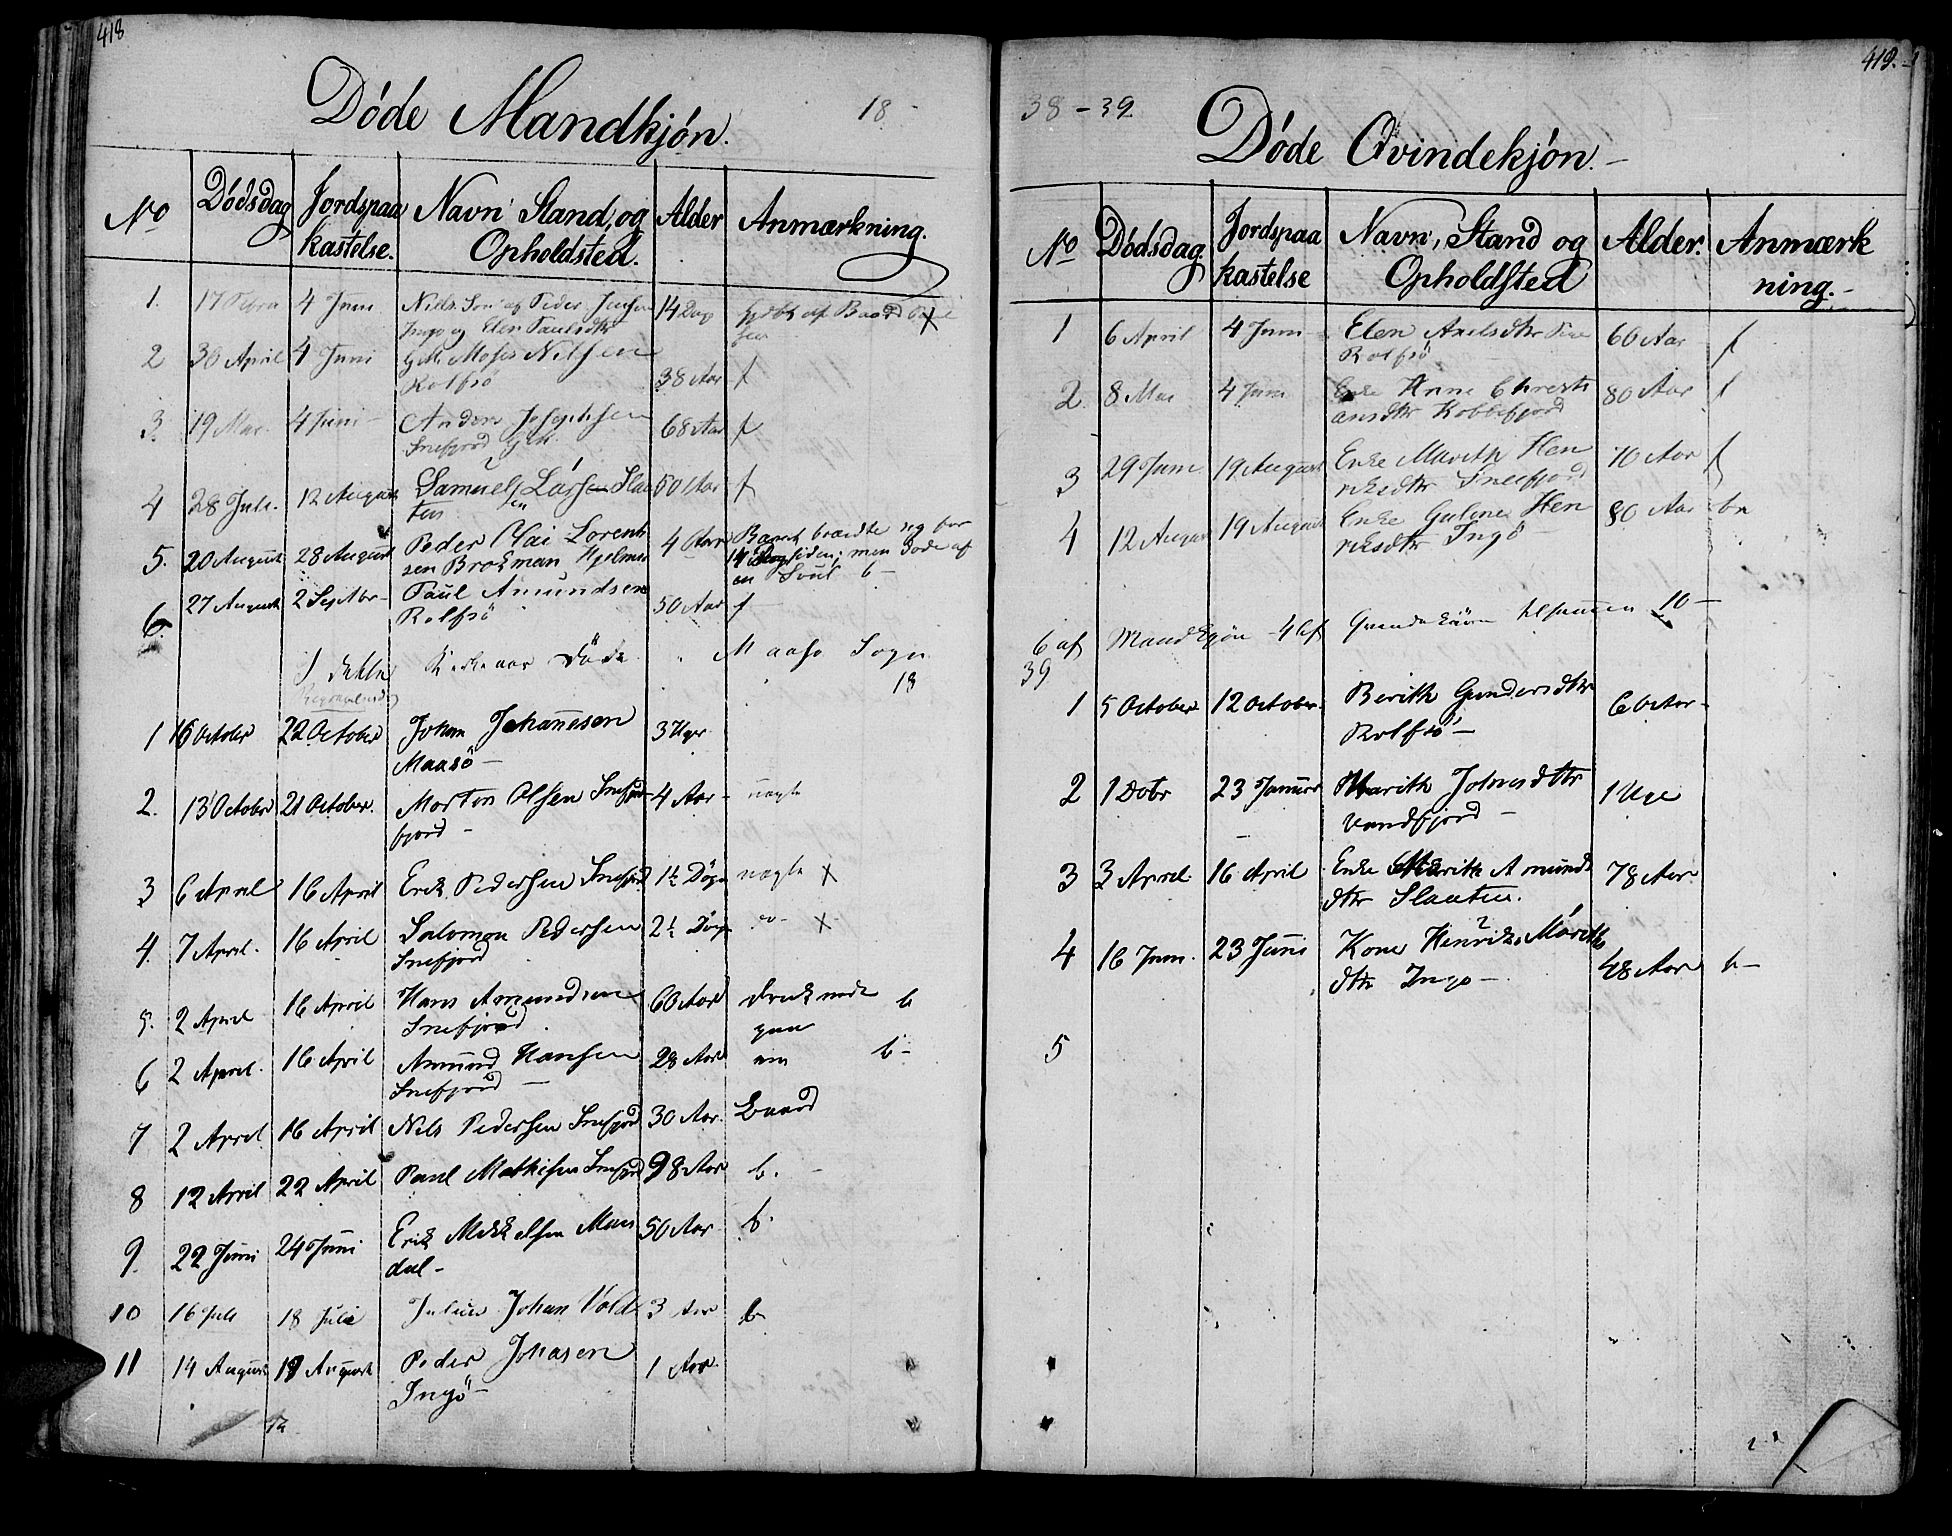 418
Døde Mandkjøn. 18
No Dødsdag Jordspaa kastelse. Navn Stand, og Opholdsted. Alder Anmærkning.
1. 17 4 Juni Niels Søn af Peder Jensen 14 Dage døbt af Baard
Ingø og Elen Paulsdtr
2 30 April 4 Juni G.M. Moses Nilsen
Rolfsø 38 Aar f
3. 19 Mai 4 Juni Anders Josephsen 68 Aar f
Snefjord G.M.
4 28 Juli 12 August Samuel Larsen Slaa 50 Aar f
ten
5. 20 August 28 August Peder Clai Lorent 4 Aar Barnet brændte sig for
sen Brokman Hjelmsø 14 Dage siden; men døde af
en b
6. 27 August 2 Septbr Paul Amundsen 50 Aar f
Rolfsø
Kirkeaar Døde Maasø Sogn
1 16 Octobr 22 October Johan Johannesen 3 Uger
Maasø
2. 13 Octobr 21 October. Morten Olsen 4 Aar
fjord
3 6 April 16 April Erik Pedersen Snefjord 1½ Døgn x
4. 7 April 16 April Salomon Pedersen 2½ Døgn x
Snefjord
5. 2 April 16 April Hans Amundsen 60 Aar druknede b
Snefjord
6 2 April 16 April Amund Hansen 28 Aar b
Snefjord
7 2 April 16 April Nils Pedersen Snefjord 30 Aar. Baad
8 12 April 22 April Paul Mathisen Snefjord 98 Aar b.
9. 22 Juni 24 Juni Erik Mikkelsen Man 50 Aar b.
dal
10 16 Juli 18 Julie Julius Johan Vold 3 Aar b
11 14 August 19 August Peder Johasen 1 Aar
Ingø
12
419.
38-39
Døde Qvindekjøn.
No Dødsdag. Jordspaa kastelse Navn, Stand og Opholdsted Alder. Anmærk ning.
1 6 April 4 Juni Elen Axelsdtr 60 Aar f
Rolfsø
2. 8 Mai 4 Juni Enke Anne Christi 80 Aar f
ansdtr Kobbefjord
3 29 Juni 19 August Enke Marith Hen 70 Aar f
riksdtr Snefjord
4 12 August 19 August Enke Guline Hen 80 Aar bn
riksdtr Ingø
6 af Mandkjøn 4 af Qvindekjøn tilsammen 10
39
1 5 October 12 October. Berith Gundersdtr 6 Aar
Rolfsø
2 1 Dcbr 23 Januar Marith Johnsdtr 1 Uge
Vandfjord
3 3 April 16 April Enke Marith Amunds 78 Aar
dtr Slaaten.
4 16 Juni. 23 Juni Kone Henrike Marith 48 Aar b
dtr Ingø
5